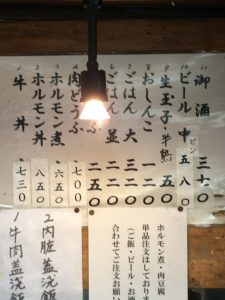 11 御酒 三七〇
10 ビール 中 ビン 五八〇
9 生玉子・半熟
8 おしんこ 一二〇
7 ごはん 大 三二〇
6 ごはん 並 二二〇
二五〇
4 肉どうふ ・七〇〇
3 ホルモン煮 ・六五〇
2 ホルモン丼 八五〇
1 牛丼 ・七三〇
ホルモン煮・肉豆腐
単品注文はしておりま
(ご飯・ビール・お酒
合わせてご注文お願い
2 内脏盖浇飯
1 牛肉盖浇飯